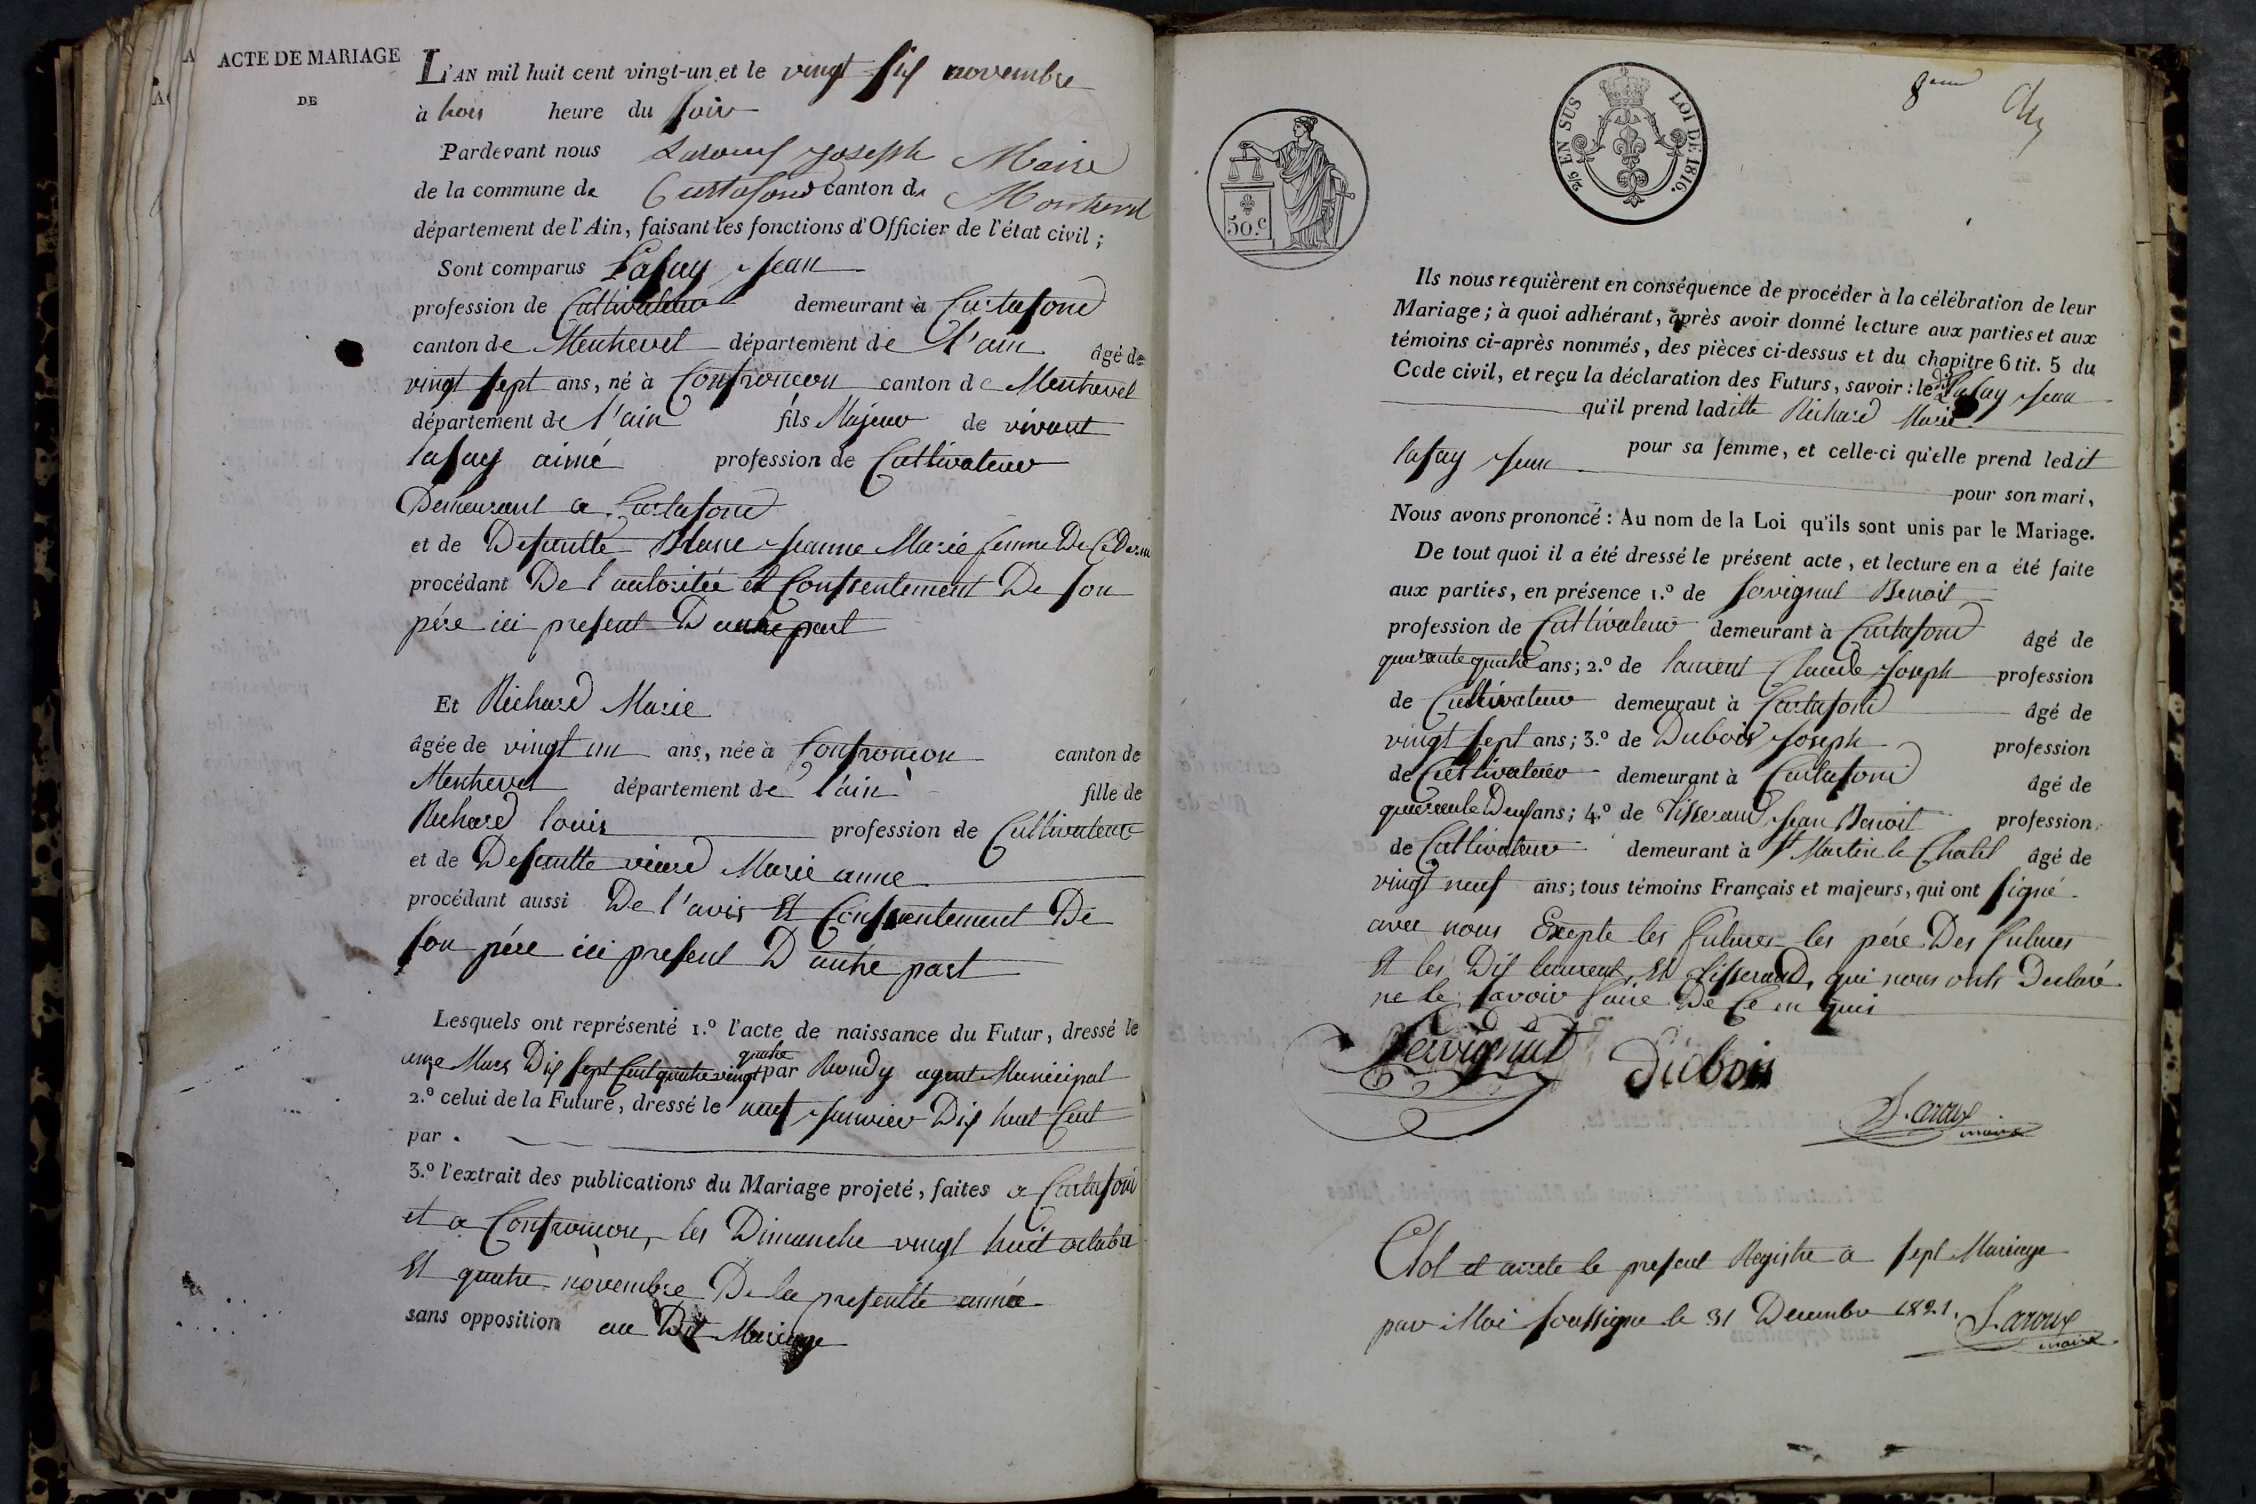 ACTE DE MARIAGE
DE
L'AN mil huit cent vingt-un et le vingt six novembre
à trois heure du soir
Pardevant nous Laroux Joseph Maire
de la commune de Curtafond canton de Montrevel
département de l'Ain, faisant les fonctions d'Officier de l'état civil ;
Sont comparus Lafay Jean
profession de Cultivateur demeurant à Curtafond
canton de Montrevel département de l'ain âgé de
vingt sept ans, né à Confrançon canton de Montrevel
département de l'ain fils Majeur de vivant
lafay aimé profession de Cultivateur
Demeurant a Curtafond
et de Defuntte Blanc Jeanne Marie femme De Ce Dernier
procédant De l'autoritée et Consentement De son
pére ici present D'autre part
Et Richard Marie
âgée de vingt un ans, née à Confrançon canton de
Montrevel département de l'ain fille de
Richard louis profession de Cultivateur
et de Defuntte viard Marie anne
procédant aussi De l'avis Et Consentement De
son pére ici present D'autre part
Lesquels ont représenté 1.º l'acte de naissance du Futur, dressé le
onze Mars Dix sept Cent quatre vingt quatre par Rondy agent Municipal
2.º celui de la Future, dressé le neuf Janvier Dix huit Cent
par
3.º l'extrait des publications du Mariage projeté, faites a Curtafond
et a Confrançon, les Dimanche vingt huit octobre
Et quatre novembre De la presentte année
sans opposition au Dit Mariage
50.c
2/5 EN SUS LOI DE 1816.
8eme
Ils nous requièrent en conséquence de procéder à la célébration de leur
Mariage ; à quoi adhérant, après avoir donné lecture aux parties et aux
témoins ci-après nommés, des pièces ci-dessus et du chapitre 6 tit. 5 du
Code civil, et reçu la déclaration des Futurs, savoir : le dit Lafay Jean
qu'il prend laditte Richard Marie
pour sa femme, et celle-ci qu'elle prend ledit
lafay Jean pour son mari,
Nous avons prononcé : Au nom de la Loi qu'ils sont unis par le Mariage.
De tout quoi il a été dressé le présent acte, et lecture en a été faite
aux parties, en présence 1.º de Servignat Benoit
profession de Cultivateur demeurant à Curtafond âgé de
quarante quatre ans ; 2.º de laurent Claude Joseph profession
de Cultivateur demeuraut à Curtafond âgé de
vingt sept ans ; 3.º de Dubois Joseph profession
de Cultivateur demeurant à Curtafond âgé de
quarante Deux ans ; 4.º de Tisserand Jean Benoit profession
de Cultivateur demeurant à St Martin le Chatel âgé de
vingt neuf ans ; tous témoins Français et majeurs, qui ont signé
avec nous Exepte les futures les pére Des futures
Et les Dit laurent, Et Tisserand, qui nous onts Declaré
ne le savoir faire De Ce en quis
Servignat Dubois
Laroux
maire
Clot et arrete le present Registre a sept Mariage
par Moi soussigne le 31 Decembre 1821. Laroux
maire